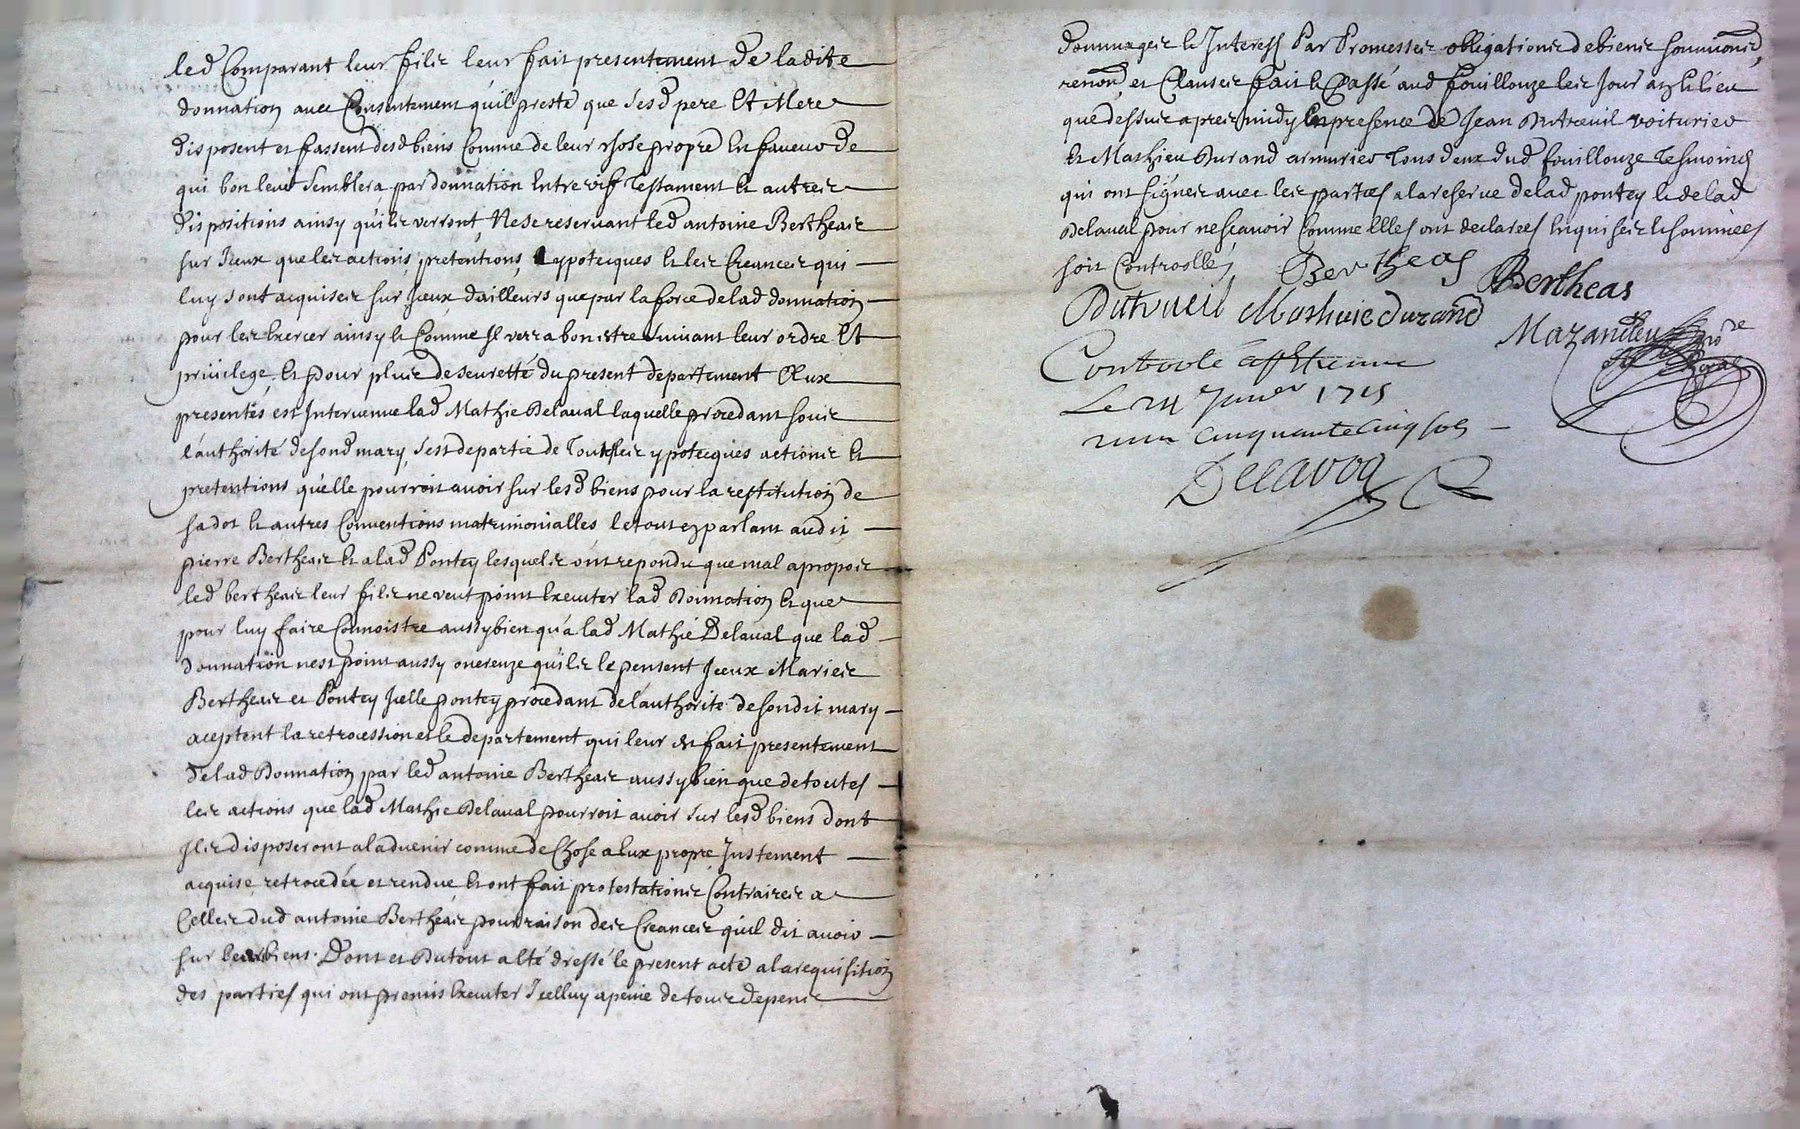 led Comparant leur filz leur fait presentement de ladite
donnation avec Consentement quil preste que sesd pere Et Mere
disposent et fassent desd biens Comme de leur chose propre En faveur de
qui bon leur semblera par donnation Entre vifs Testament Et autres
dispositions ainsy quilz verront, Ne se reservant led antoine Bertheas
sur Iceux que les actions, pretentions, ypotecques Et les Creances qui
luy sont acquises sur Iceux dailleurs que par la force de lad donnation
pour les Exercer ainsy Et Comme Il verra bon estre suivant leur ordre Et
privilege, Et pour plus de seuretté du present departement Aux
presentes est Intervenue lad Mathie Delaval laquelle procedant sous
l'authorité de sond mary, sest departie de Touttes ypotecques actions Et
pretentions quelle pourroit avoir sur lesd biens pour la restitution de
sa dot Et autres Conventions matrimonialles le tout en parlant audit
pierre Bertheas Et a lad Pontey lesquelz ont repondu que mal a propos
led bertheas leur filz ne veut point Executer lad Donnation Et que
pour luy faire Connoistre aussy bien qu'a lad Mathie Delaval que lad
donnation nest point aussy onereuze quilz le pensent Iceux Maries
Bertheas et Pontey Icelle pontey procedant de l'authorité de sondit mary
aceptent la retrocession et le departement qui leur est fait presentement
de lad Donnation par led antoine Bertheas aussy bien que de toutes
les actions que lad Mathie Delaval pourroit avoir sur lesd biens dont
Ilz disposeront a ladvenir comme de Chose a Eux propre Justement
acquise retrocedée et rendue Et ont fait protestations Contraires a
Celles dud antoine Bertheas pour raison des Creances quil dit avoir
sur biens. Dont et Du tout a Eté dressé le present acte a la requisition
des parties qui ont promis Executer Icelluy a peine de tous depens
dommages Et Interests Par Promesses obligations de biens soumissions,
renon, et Clauses fait Et Passé aud fouillouze les Jour an Et lieu
que dessus apres midy En presence de Jean Dutreuil voiturier
Et Mathieu Durand armurier Tous deux dud fouillouze Tesmoins
qui ont signes avec les parties a la reserve de lad pontey Et de lad
Delaval pour ne scavoir Comme Elles ont declarées Enquises Et sommées
soit Controollé,
Bertheas Bertheas
Dutrueil Mathieu Durand
Mazandieu
Controlé a St Etienne
Le 24 Janer 1715
cinquante Cinq sols
Delavoa